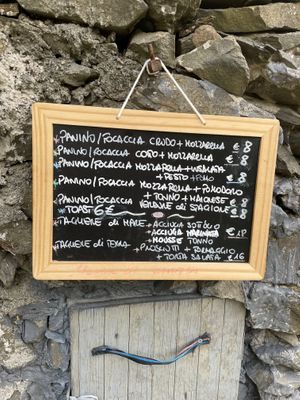 PANINO/FOCACCIA CRUDO + MOZZARELLA € 8
PANINO/FOCACCIA COTTO + MOZZARELLA € 8
PANINO/FOCACCIA MOZZARELLA + INSALATA
+ PESTO € 8
PANINO/FOCACCIA MOZZARELLA + POMODORO € 8
PANINO/FOCACCIA + TONNO + MAIONESE € 8
TOAST 6 € VERDURE di STAGIONE € 8
TAGLIERE di MARE + ACCIUGA SOTT'OLIO
+ ACCIUGA MARINATA
+ MOUSSE TONNO €
TAGLIERE di TERRA + PROSCIUTTI + FORMAGGIO
+ TORTA SALATA € 16